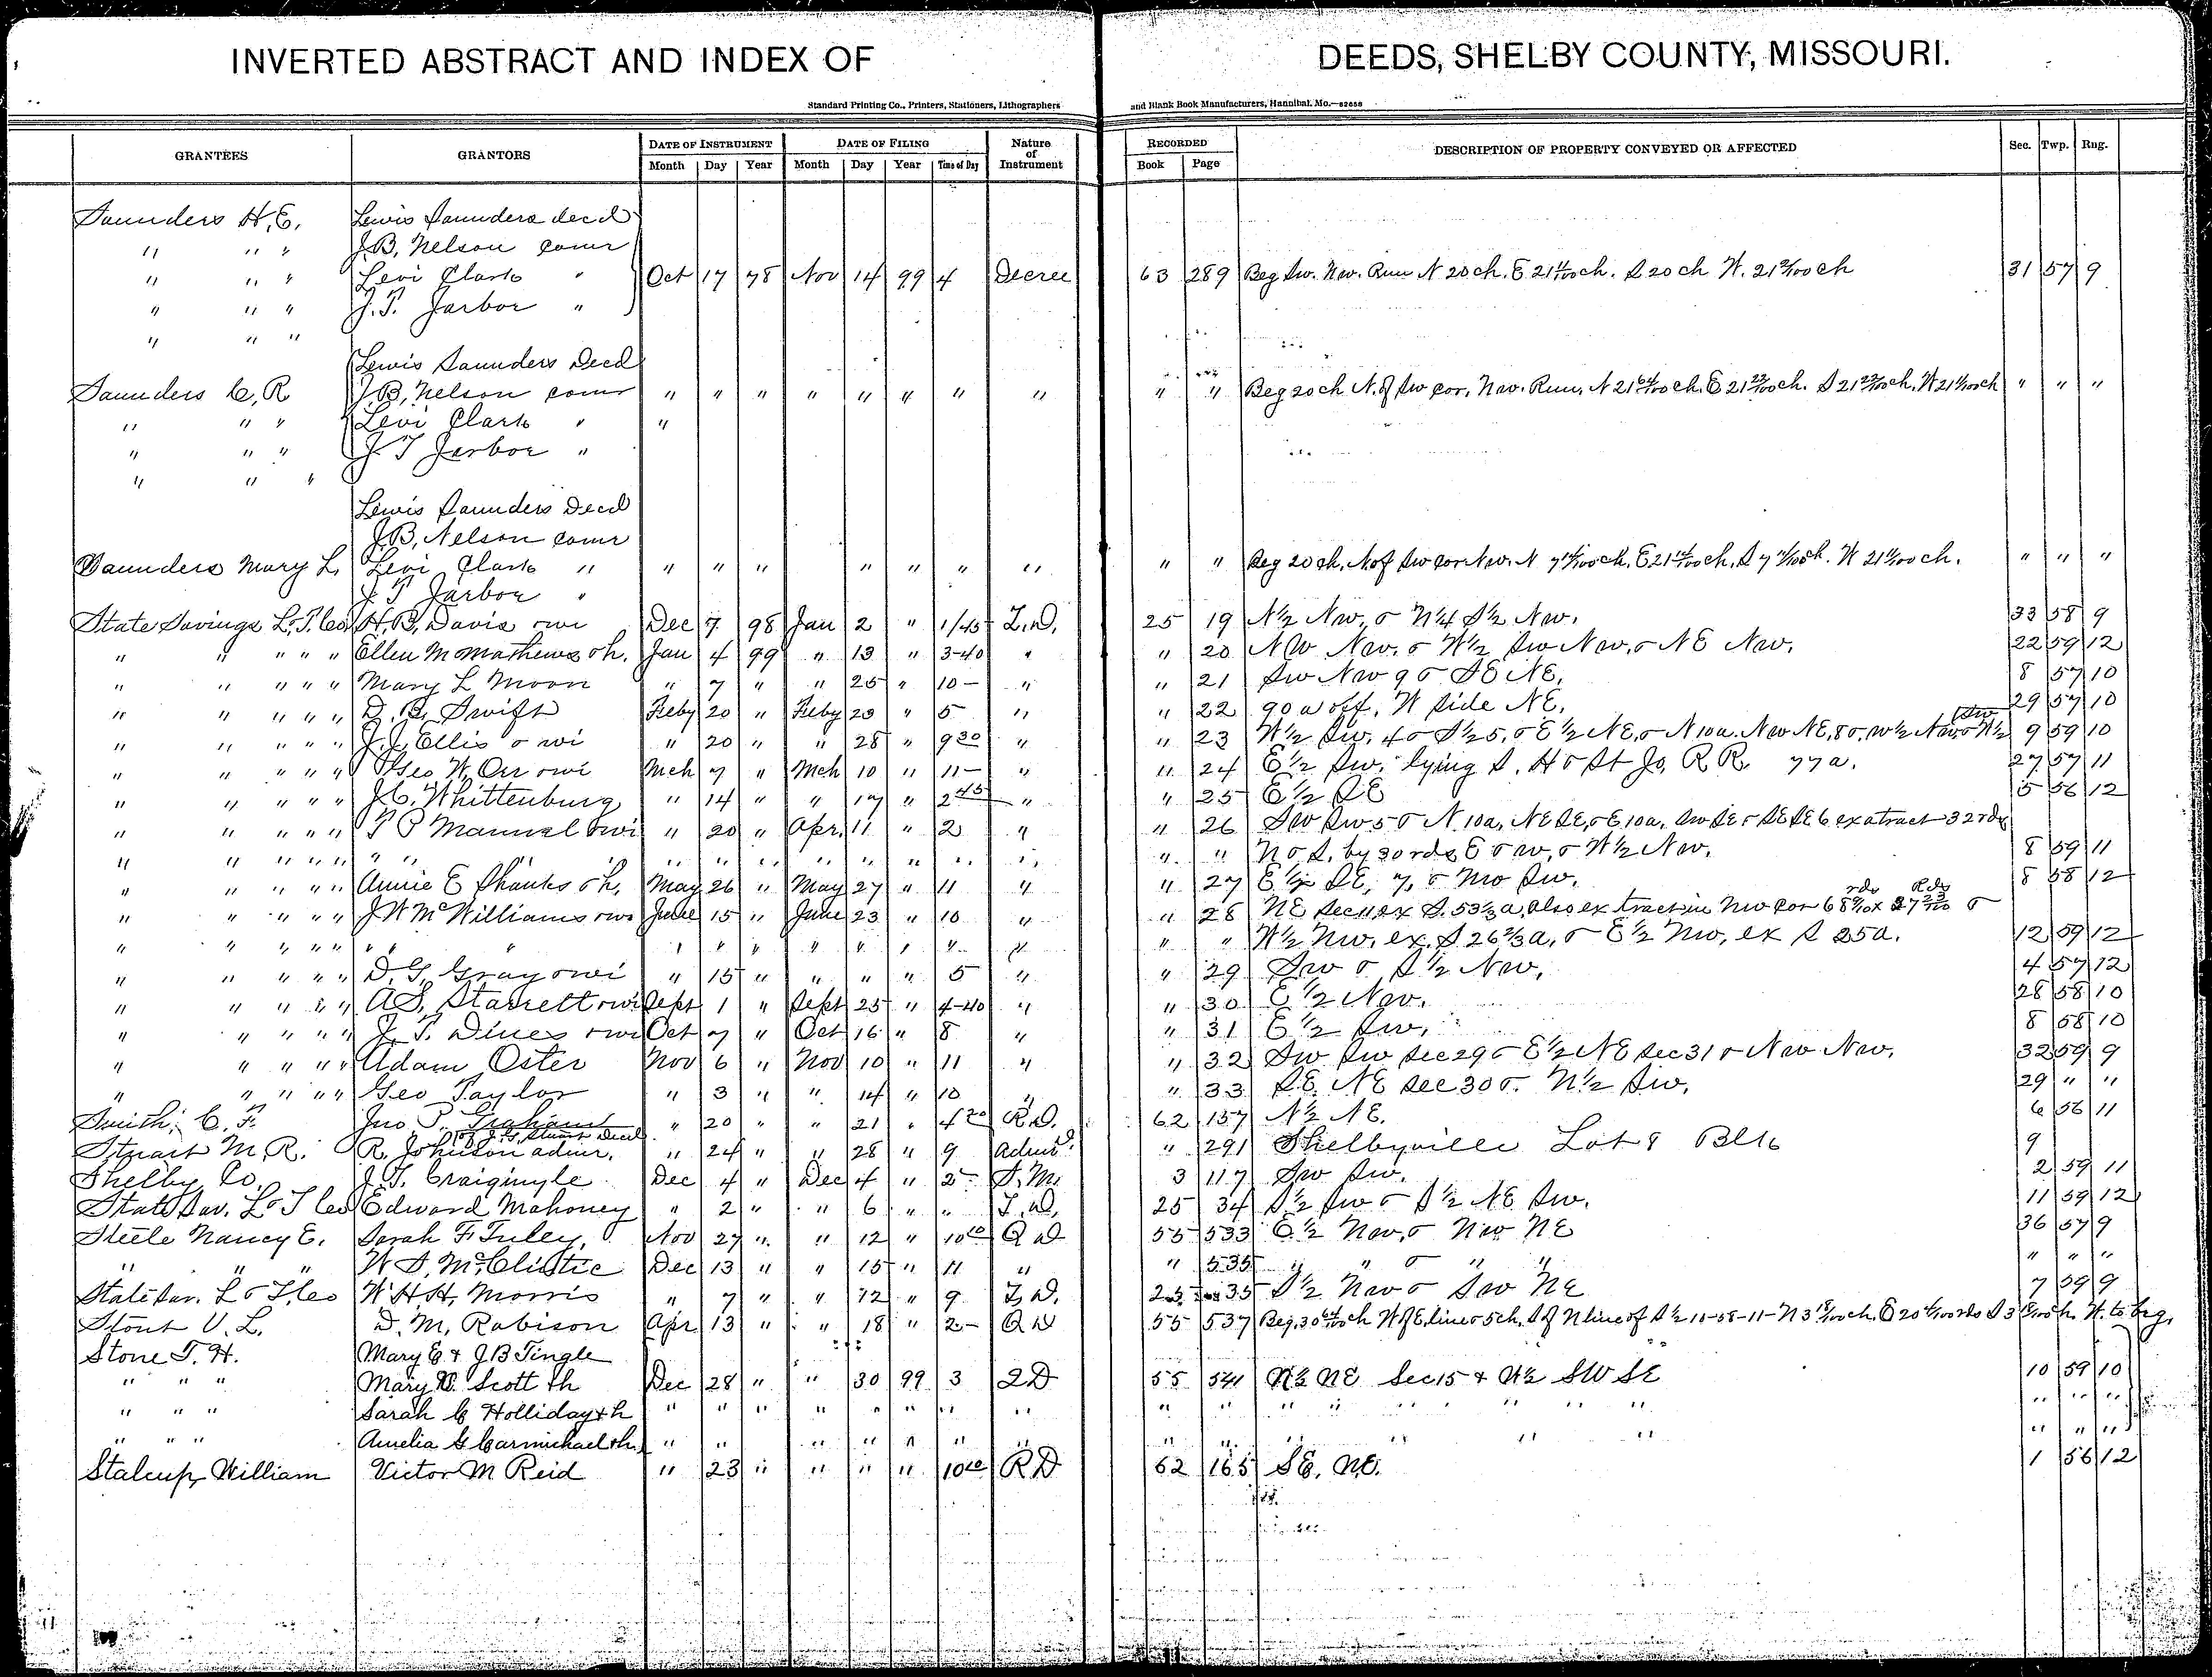 INVERTED ABSTRACT AND INDEX OF DEEDS, SHELBY COUNTY, MISSOURI.
Standard Printing Co., Printers, Stationers, Lithographers and Blank Book Manufacturers, Hannibal, Mo.—82658
GRANTEES GRANTORS DATE OF INSTRUMENT DATE OF FILING Nature of Instrument RECORDED DESCRIPTION OF PROPERTY CONVEYED OR AFFECTED Sec. Twp. Rng.
Month Day Year Month Day Year Time of Day Book Page
Saunders H, E, Lewis Saunders decd
" " " J. B, Nelson comr
" " " Levi Clark " Oct 17 98 Nov 14 99 4 Decree 63 289 Beg Sw. Nw. Run N 20 ch. E 21 ch. S 20 ch W. 21 ch 31 57 9
" " " J. T. Jarboe "
" " "
Lewis Saunders Decd
Saunders C, R J B, Nelson comr " " " " " " " " " " Beg 20 ch N. of Sw cor, Nw. Run, N 21 ch. E 21 ch. S 21 ch, W 21 ch " " "
" " " Levi Clark " "
" " " J T Jarboe "
" " "
Lewis Saunders Decd
J. B, Nelson comr
Saunders Mary L, Levi Clark " " " " " " " " " " Beg 20 ch. N of Sw cor Nw. N 7 ch, E 21 ch, S 7 ch. W 21 ch. " " "
J T Jarboe "
State Savings L, T. Co H, B, Davis & wi Dec 7 98 Jan 2 " 1/45 T. D. 25 19 N½ Nw, & N¼ S½ Nw. 33 58 9
" " " " " Ellen M Mathews & h. Jan 4 99 " 13 " 3-40 " " 20 NW Nw. & W½ Sw Nw, & NE Nw, 22 59 12
" " " " " Mary L Moon " 7 " " 25 " 10- " " 21 Sw Nw 9 & SE NE, 8 57 10
" " " " " D. B, Swift Feby 20 " Feby 23 " 5 " " 22 90 a off, W side NE, 29 57 10
" " " " " J. J, Ellis & wi " 20 " " 28 " 9 30 " " 23 W½ Sw, 4 & S½ 5, & E½ NE, & N 10a. Nw NE, 8 & W½ Nw & W½ Sw 9 59 10
" " " " " Geo W, Orr & wi Mch 7 " Mch 10 " 11- " " 24 E½ Sw, lying S. H & St Jo, R R. 77 a. 27 57 11
" " " " " J. C. Whittenburg " 14 " " 17 " 2 45 " " 25 E½ SE 5 56 12
" " " " " T P Manuel & wi " 20 " Apr. 11 " 2 " " 26 Sw Sw 5 & N 10a, NE SE, & E 10a, Sw SE & SE SE 6 ex a tract 32 rds
" " " " " " " " " " " " " " " " " N & S, by 30 rds E & W, & W½ Nw. 8 59 11
" " " " " Annie E Shanks & h, May 26 " May 27 " 11 " " 27 E½ SE, 7, & Nw Sw. 8 58 12
" " " " " J W McWilliams & wi June 15 " June 23 " 10 " " 28 NE Sec 11 ex S. 53⅓ a, also ex tract in Nw cor
" " " " " " " " " " " " " " " " " " W½ Nw, ex. S 26⅔ a, & E½ Nw, ex S 25a. 12 59 12
" " " " " D. G, Gray & wi " 15 " " " " 5 " " 29 Sw & S½ Nw, 4 57 12
" " " " " A S, Starrett & wi Sept 1 " Sept 25 " 4-40 " " 30 E½ Nw. 28 58 10
" " " " " J. T. Dines & wi Oct 7 " Oct 16 " 8 " " 31 E½ Sw, 8 58 10
" " " " " Adam Oster Nov 6 " Nov 10 " 11 " " 32 Sw Sw Sec 29 & E½ NE Sec 31 & Nw Nw, 32 59 9
" " " " " Geo Taylor " 3 " " 14 " 10 " 33 SE. NE Sec 30 &. N½ Sw, 29 " "
Smith, C. F. Jno P. Graham " 20 " " 21 " 4 20 R. D. 62 157 N½ NE. 6 56 11
Stuart M. R. R. Johnson admr, " 24 " " 28 " 9 Admr " 291 Shelbyville Lot 8 Blk 9
Shelby Co. J. T. Craigmyle Dec 4 " Dec 4 " 2- S. M. 3 117 Sw Sw. 2 59 11
State Sav. L & T Co Edward Mahoney " 2 " " 6 " " T. D, 25 34 S½ Sw & S½ NE Sw. 11 59 12
Steele Nancy E. Sarah F Tuley, Nov 27 " " 12 " 10 Q D 55 533 E½ Nw, & Nw NE 36 57 9
" " " W S, McClintic Dec 13 " " 15 " 11 " " 535 " " & " " " " "
State Sav. L & T Co W H H, Morris " 7 " " 12 " 9 T. D. 25 35 S½ Nw & Sw NE 7 59 9
Stout V. L. D. M, Robison Apr 13 " " 18 " 2- Q D 55 537 Beg. 30 ch W of E. line & 5 ch. S of N line of S½ 10-58-11- N 3 ch, E 20 rds S 3 ch. W. to beg,
Stone T. H. Mary E & J B Tingle
" " " Mary D. Scott & h Dec 28 " " 30 99 3 2 D 55 541 N½ NE Sec 15 & W½ SW SE 10 59 10
" " " Sarah C Holliday & h " " " " " " " " " " " " " " " " " " " "
" " " Amelia G Carmichael & h " " " " " " " " " " " " " "
Stalcup, William Victor M Reid " 23 " " " " 10 R D 62 165 SE, NE. 1 56 12